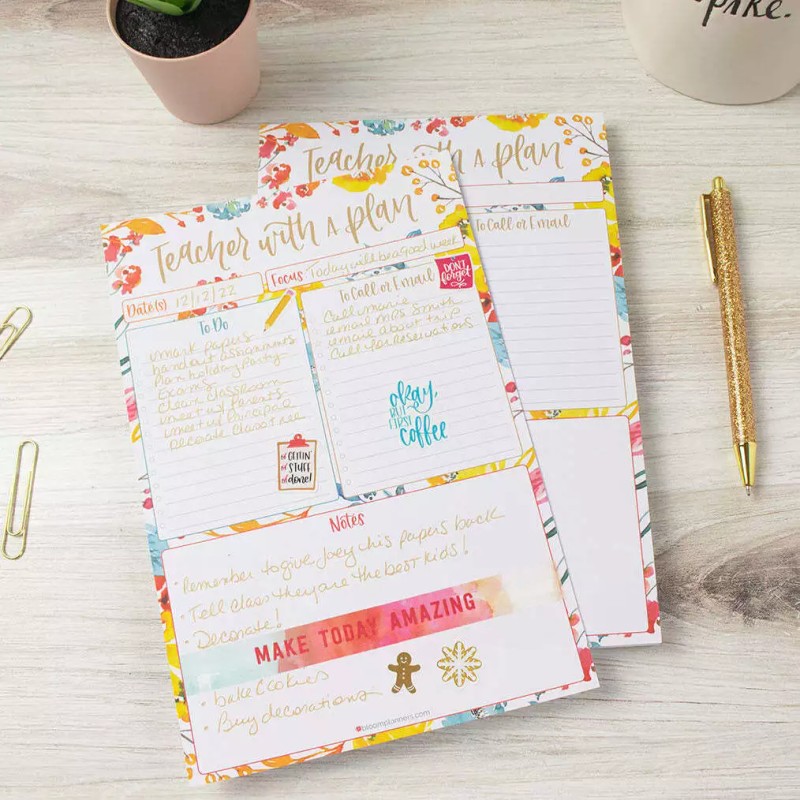 spike.
Teacher with a plan
To Call or Email
Teacher with a plan
Date(s) 12/12/22
Focus Today will be a good week
To Do
mark papers
handout assignments
Plan holiday Party
Exams
clean classroom
meet w/ Parents
meet w/ Principal
Decorate class tree
GETTIN'
STUFF
done!
To Call or Email
DON'T
forget
Call marie
email mrs Smith
email about trip
Call for reservations
okay,
BUT
FIRST
coffee
Notes
• Remember to give Joey his papers back
• Tell class they are the best kids!
• Decorate!
MAKE TODAY AMAZING
• bake cookies
• Buy decorations
bloomplanners.com